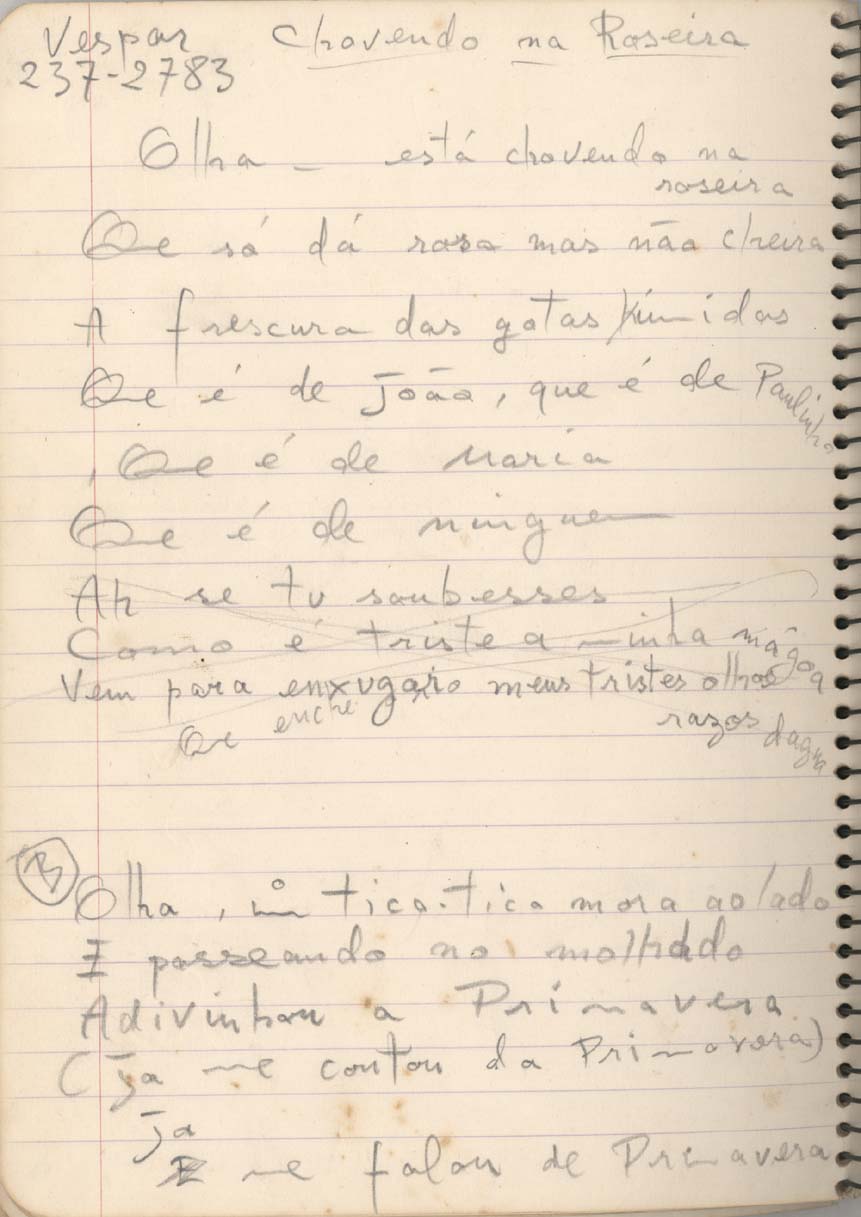 Vespar Chovendo na Roseira
237-2783
Olha - está chovendo na
roseira
Que só dá rosa mas não cheira
A frescura das gotas húmidas
Que é de João, que é de Paulinho
, Que é de Maria
Que é de ninguem
Ah se tu soubesses
Como é triste a minha mágoa
Vem para enxugar meus tristes olhos
Que enche razos dagua
B
Olha, um tico-tico mora ao lado
E passeando no molhado
Adivinhou a Primavera
(Ja me contou da Primavera)
Ja
me falou de Primavera